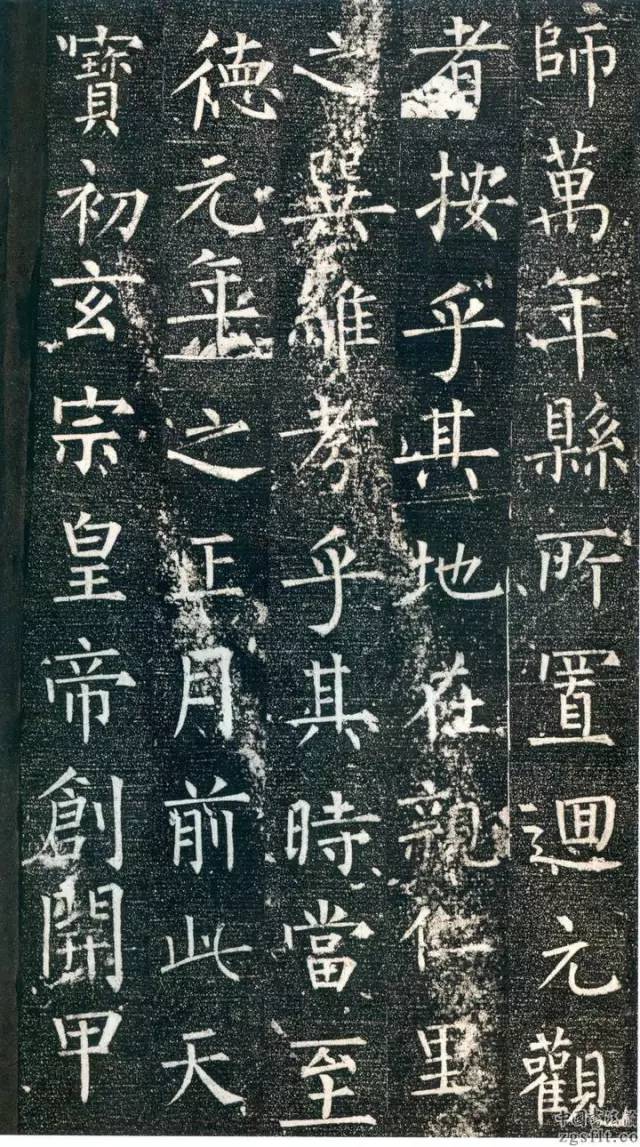 師萬年縣所置迴元觀
者按乎其地在親仁里
之巽維考乎其時當至
德元年之正月前此天
寶初玄宗皇帝創開甲
中国书法
zgsflt.co